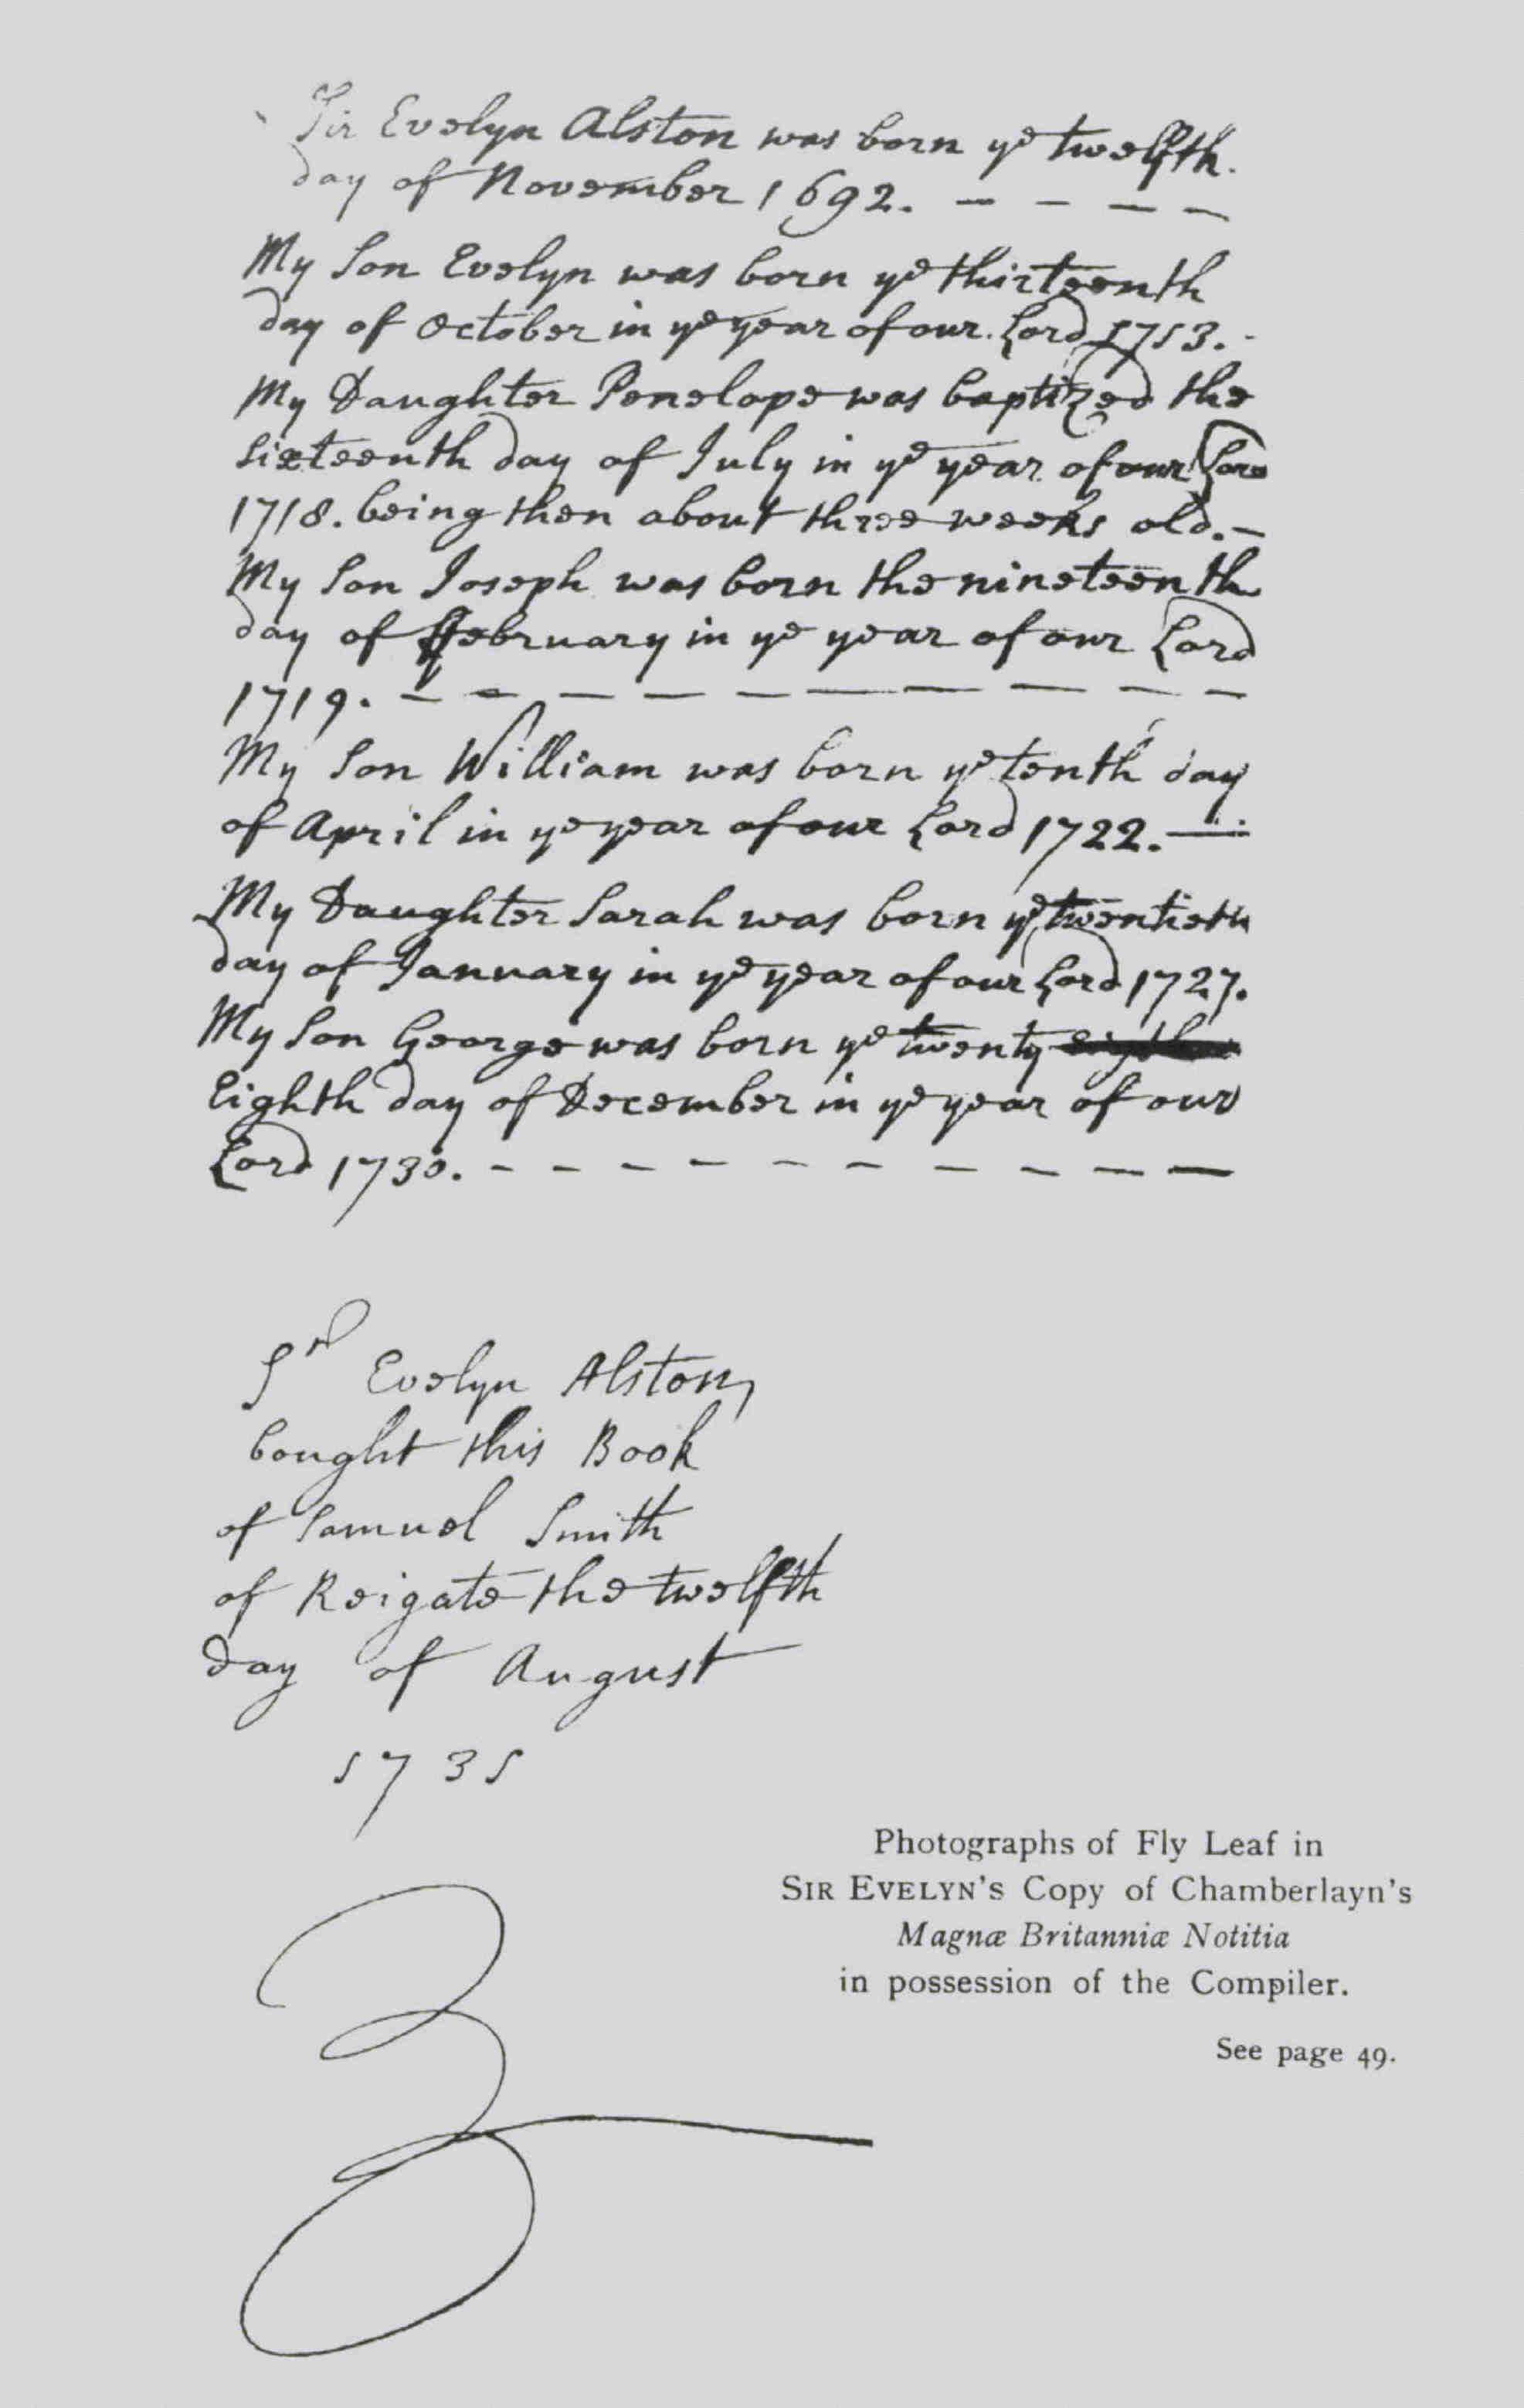 Sir Evelyn Alston was born ye twelfth.
day of November 1692. – – – –
My Son Evelyn was born ye thirteenth
day of October in ye year of our Lord 1713. -
My Daughter Penelope was baptized the
Sixteenth day of July in ye year of our Lord
1718. being then about three weeks old. –
My Son Joseph was born the nineteenth
day of ffebruary in ye year of our Lord
1719. – – – – – – – – – –
My Son William was born ye tenth day
of April in ye year of our Lord 1722. —
My Daughter Sarah was born ye twentieth
day of January in ye year of our Lord 1727.
My Son George was born ye twenty
Eighth day of December in ye year of our
Lord 1730. – – – – – – – – – –
Sr Evelyn Alston,
bought this Book
of Samuel Smith
of Reigate the twelfth
day of August
1731
Photographs of Fly Leaf in
SIR EVELYN'S Copy of Chamberlayn's
Magnæ Britanniæ Notitia
in possession of the Compiler.
See page 49.